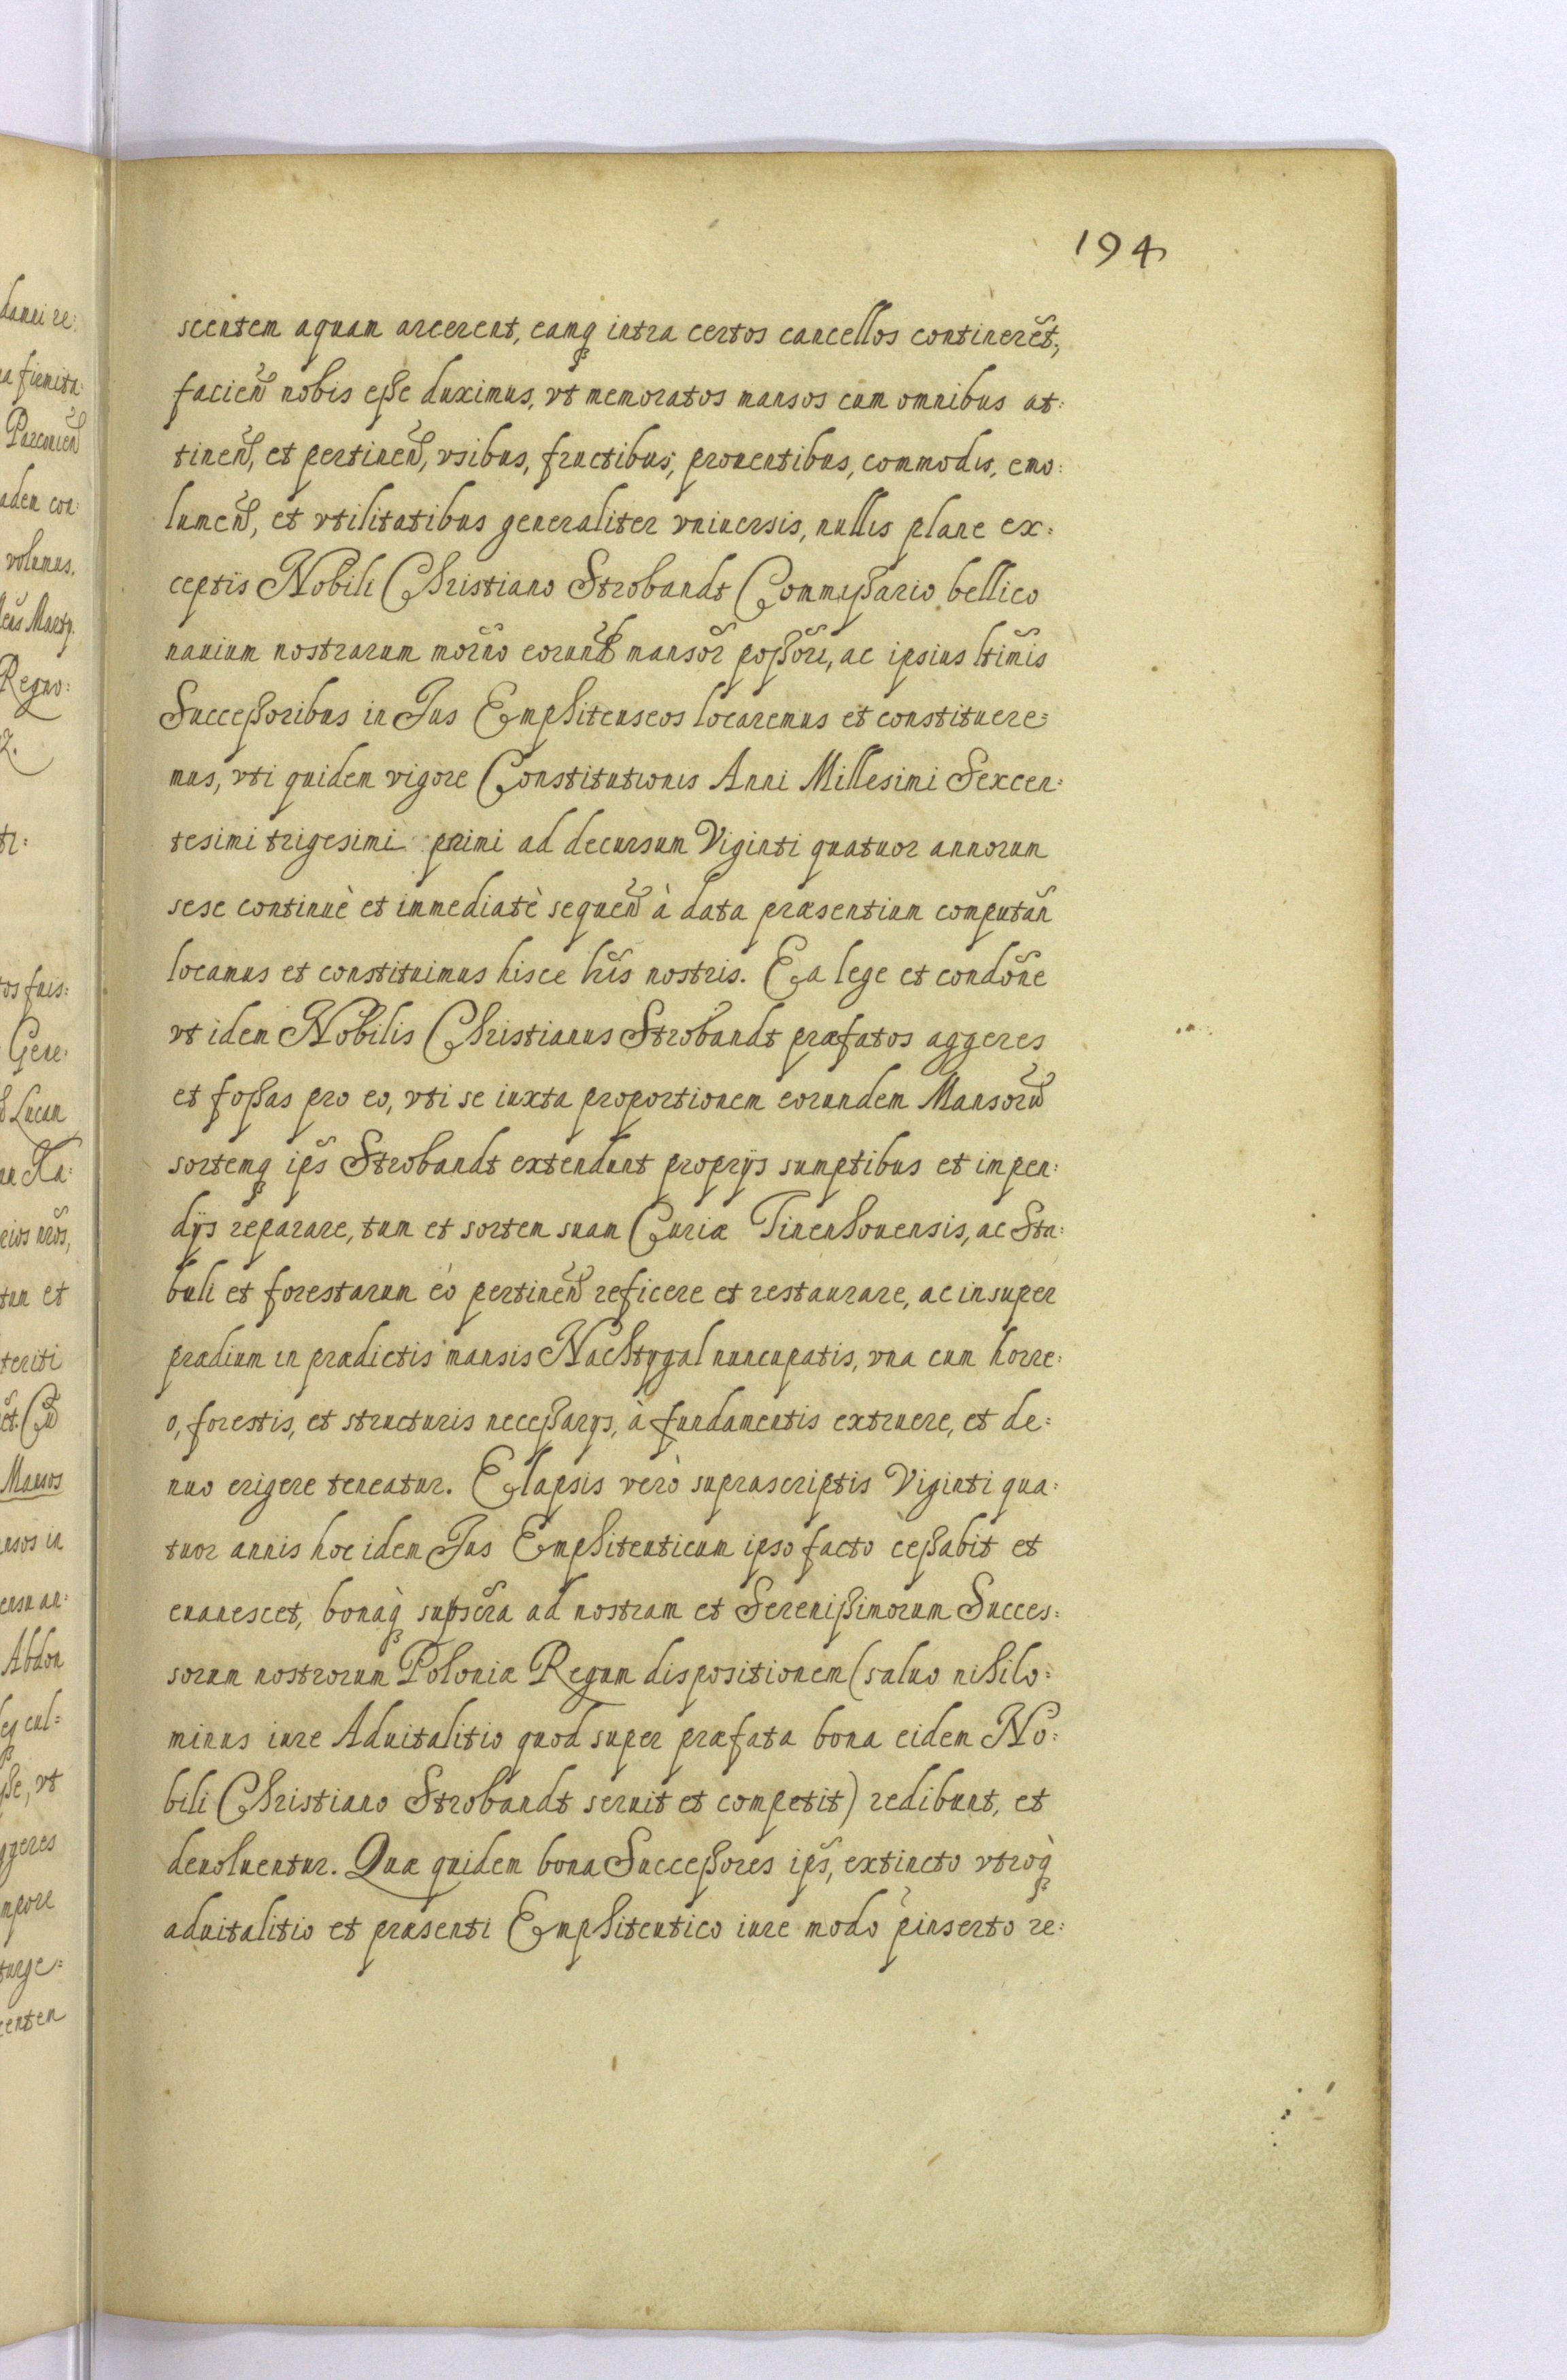 194
scentem aquam arcerent, eamq́ intra certos cancellos contineret̃,
facien̄ nobis eße duximus, vt memoratos mansos cum omnibus at:
tinen̄, et pertinen̄, vsibus, fructibus, prouentibus, commodis, emo:
lumen̄, et vtilitatibus generaliter vniuersis, nullis plane ex:
ceptis Nobili Christiano Strobandt Commißario bellico
nauium nostrarum mor̃no eorund̃ mansor̃ poßor̃i, ac ipsius ltim̃is
Succeßoribus in Jus Emphiteuseos locaremus et constituere:
mus, vti quidem vigore Constitutionis Anni Millesimi Sexcen:
tesimi trigesimi primi ad decursum Viginti quatuor annorum
sese continuè et immediatè sequen̄ à data præsentium computañ
locamus et constituimus hisce lr̃is nostris. Ea lege et condõne
vt idem Nobilis Christianus Strobandt præfatos aggeres
et foßas pro eo, vti se iuxta proportionem eorundem Mansorū
sortemq́ ips̃ Strobandt extendunt proprijs sumptibus et impen:
dijs reparare, tum et sortem suam Curiæ Tinenhouensis, ac Sta:
buli et forestarum eò pertinen̄ reficere et restaurare, ac insuper
prædium in prædictis mansis Nachtygal nuncupatis, vna cum horre:
o, forestis, et structuris neceßarijs, à fundamentis extruere, et de:
nuo erigere teneatur. Elapsis verò suprascriptis Viginti qua:
tuor annis hoc idem Jus Emphiteuticum ipso facto ceßabit et
euanescet, bonaq̀ supscr̃a ad nostram et Serenißimorum Succes:
sorum nostrorum Poloniæ Regum dispositionem (saluo nihilo:
minus iure Aduitalitio quod super præfata bona eidem No:
bili Christiano Strobandt seruit et competit) redibunt, et
deuoluentur. Quæ quidem bona Succeßores ips̃, extincto vtroq̀
aduitalitio et præsenti Emphiteutico iure modo p̀inserto re: